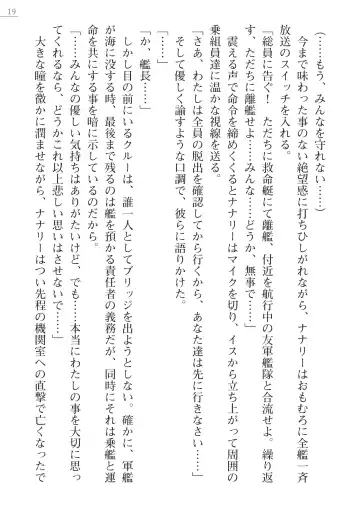 19
(……もう、みんなを守れない……)
今まで味わった事のない絶望感に打ちひしがれながら、ナナリーはおもむろに全艦一斉
放送のスイッチを入れる。
『総員に告ぐ! ただちに救命艇にて離艦、付近を航行中の友軍艦隊と合流せよ。繰り返
す、ただちに離艦せよ……みんな……どうか、無事で……』
震える声で命令を締めくくるとナナリーはマイクを切り、イスから立ち上がって周囲の
乗組員達に温かな視線を送る。
「さあ、わたしは全員の脱出を確認してから行くから、あなた達は先に行きなさい……」
そして優しく諭すような口調で、彼らに語りかけた。
「か、艦長……」
しかし目の前にいるクルーは、誰一人としてブリッジを出ようとしない。確かに、軍艦
が海に没する時、最後まで残るのは艦を預かる責任者の義務だが、同時にそれは乗艦と運
命を共にする事を暗に示しているのだから。
「……みんなの優しい気持ちはありがたいけど、でも……本当にわたしの事を大切に思っ
てくれるなら、どうかこれ以上悲しい思いはさせないで……」
大きな瞳を微かに潤ませながら、ナナリーはつい先程の機関室への直撃で亡くなったで